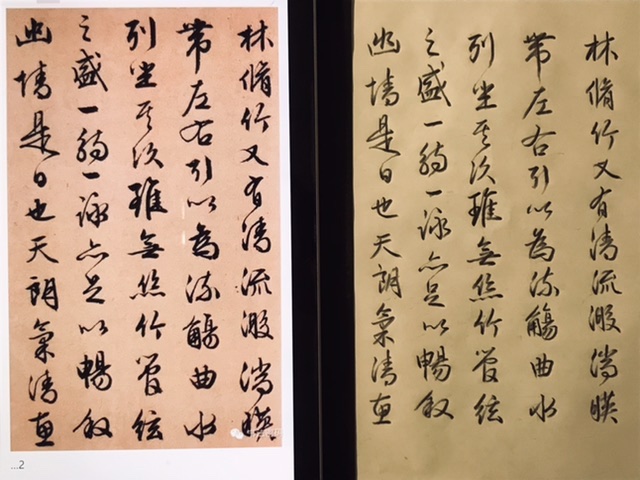 林脩竹又有清流激湍暎
帶左右引以為流觴曲水
列坐其次雖無絲竹管絃
之盛一觴一詠亦足以暢敘
幽情是日也天朗氣清惠
...2
林脩竹又有清流激湍暎
帶左右引以為流觴曲水
列坐其次雖無絲竹管絃
之盛一觴一詠亦足以暢敘
幽情是日也天朗氣清惠